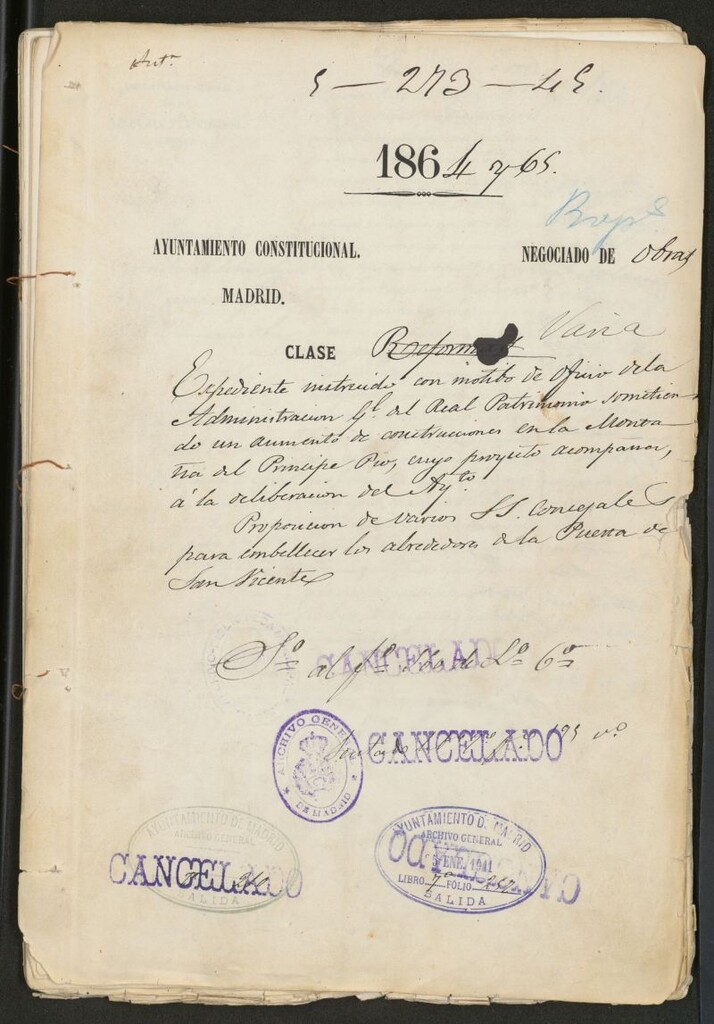 Ant.ª
5 — 273 — 45.
1864 y 65.
AYUNTAMIENTO CONSTITUCIONAL.
NEGOCIADO DE Obras
MADRID.
CLASE Reforma Varia
Espediente instruido con motibo de oficio de la
Administracion G.l del Real Patrimonio sometien-
do un aumento de construcciones en la Monta-
ña del Principe Pio, cuyo proyecto acompañan,
á la deliberacion del Ay.to
Proposicion de varios SS. Concejales
para embellecer los alrededores de la Puerta de
San Vicente
CANCELADO
S.º al f.º L.º 6.º
ARCHIVO GENERAL
DE MADRID
CANCELADO
AYUNTAMIENTO DE MADRID
ARCHIVO GENERAL
CANCELADO
SALIDA
AYUNTAMIENTO DE MADRID
ARCHIVO GENERAL
ENE. 1941
LIBRO 7ª FOLIO
SALIDA
CANCELADO